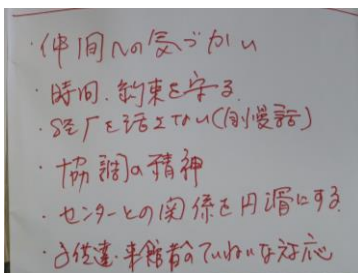 ・仲間への気づかい
・時間.約束を守る
・経歴を話さない(自慢話)
・協調の精神
・センターとの関係を円滑にする
・子供達・来館者へのていねいな対応